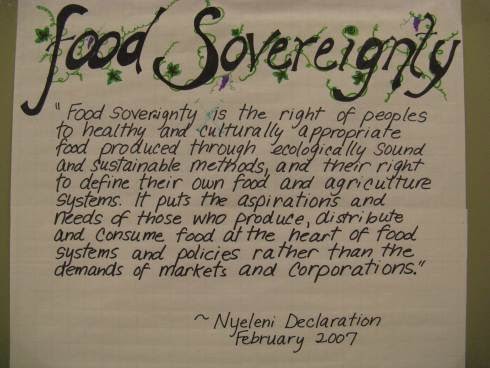 food Sovereignty
"Food Sovereignty is the right of peoples
to healthy and culturally appropriate
food produced through ecologically sound
and sustainable methods, and their right
to define their own food and agriculture
systems. It puts the aspirations and
needs of those who produce, distribute
and consume food at the heart of food
systems and policies rather than the
demands of markets and corporations."
~ Nyeleni Declaration
February 2007